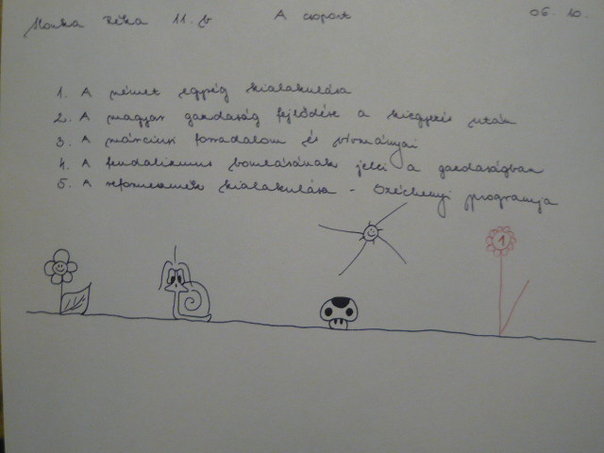 Monka Réka 11. b A csoport 06. 10.
1. A német egység kialakulása
2. A magyar gazdaság fejlődése a kiegyezés után
3. A márciusi forradalom és vívmányai
4. A feudalizmus bomlásának jelei a gazdaságban
5. A reformeszmék kialakulása - Széchenyi programja
1